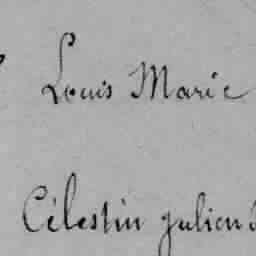 Louis Marie
Célestin julien